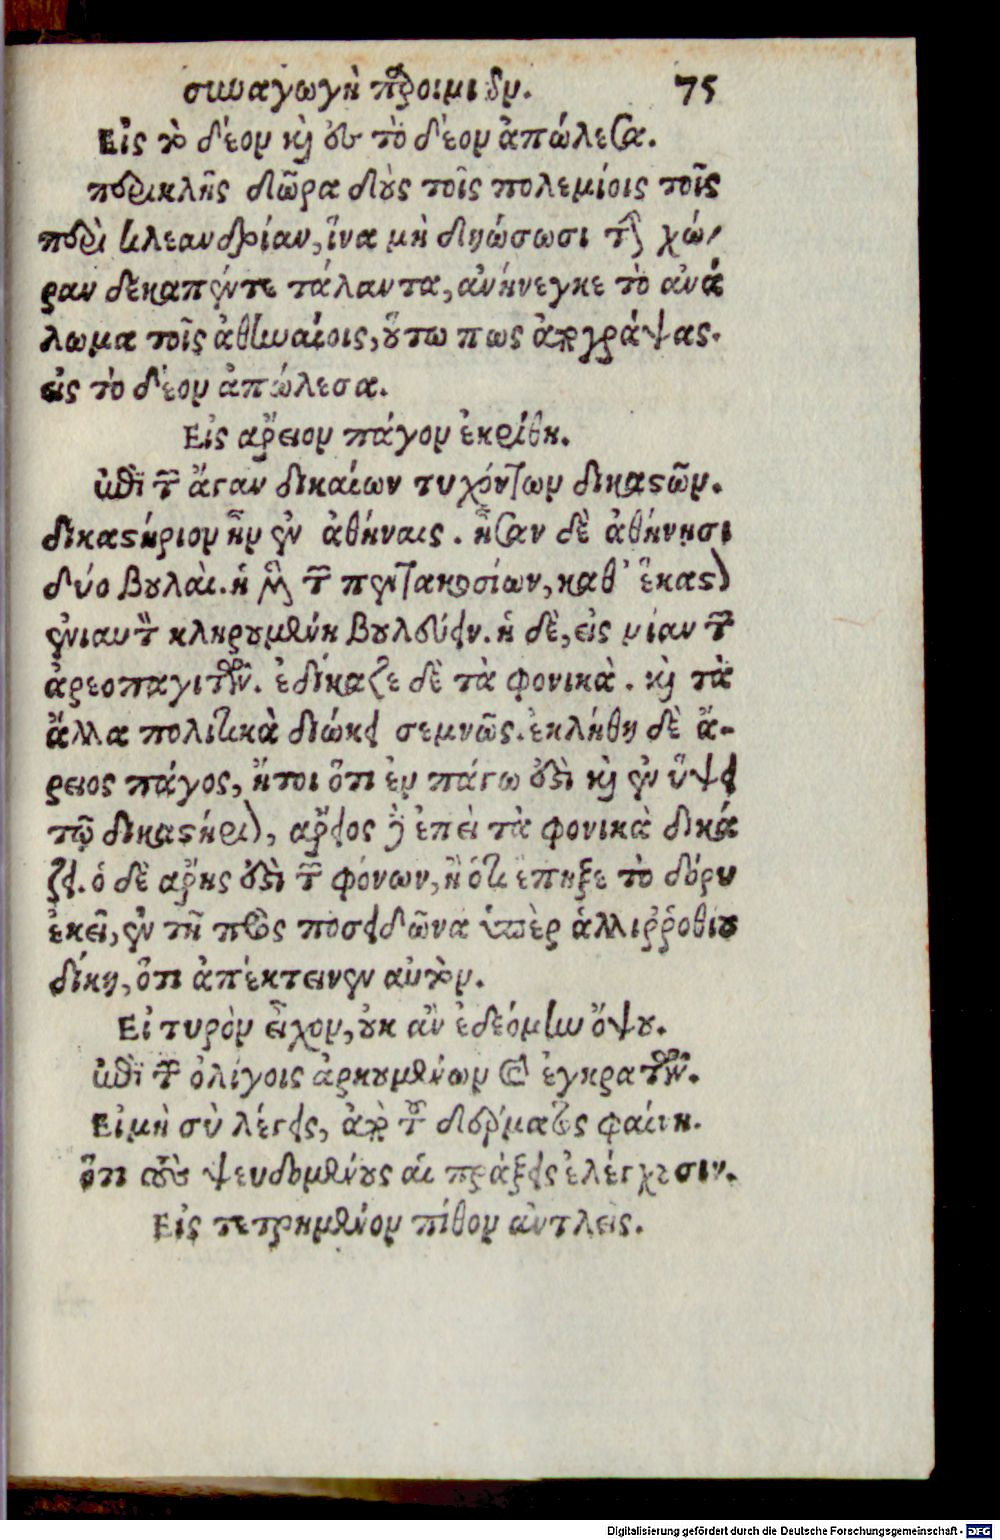 συναγωγὴ παροιμιῶν. 75
Εἰς τὸ δέον καὶ οὐ τὸ δέον ἀπώλεσα.
περικλῆς δῶρα δοὺς τοῖς πολεμίοις τοῖς
περὶ κλεανδρίαν, ἵνα μὴ δῃώσωσι τὴν χώ/
ραν δεκαπέντε τάλαντα, ἀνήνεγκε τὸ ἀνά
λωμα τοῖς ἀθηναίοις, οὕτω πως ἀπογράψας.
εἰς τὸ δέον ἀπώλεσα.
Εἰς ἄρειον πάγον ἐκρίθη.
ἐπὶ τῶν ἄγαν δικαίων τυχόντων δικαστῶν.
δικαστήριον ἦν ἐν ἀθήναις. ἦσαν δὲ ἀθήνησι
δύο βουλαὶ. ἡ μὲν τῶν πεντακοσίων, καθ' ἕκαστον
ἐνιαυτὸν κληρουμένη βουλεύειν. ἡ δὲ, εἰς μίαν τῶν
ἀρεοπαγιτῶν. ἐδίκαζε δὲ τὰ φονικὰ. καὶ τὰ
ἄλλα πολιτικὰ διώκει σεμνῶς. ἐκλήθη δὲ ἄ-
ρειος πάγος, ἤτοι ὅτι ἐν πάγω ἐστὶ καὶ ἐν ὕψει
τὸ δικαστήριον, ἄρειος δὲ ἐπεὶ τὰ φονικὰ δικά
ζει. ὁ δὲ ἄρης ἐστὶ τῶν φόνων, ἢ ὅτι ἔπηξε τὸ δόρυ
ἐκεῖ, ἐν τῆ πρὸς ποσειδῶνα ὑπὲρ ἁλλιῤῥοθίου
δίκῃ, ὅτι ἀπέκτεινεν αὐτὸν.
Εἰ τυρὸν εἶχον, οὐκ ἂν ἐδεόμην ὄψου.
ἐπὶ τῶν ὀλίγοις ἀρκουμένων καὶ ἐγκρατῶν.
Εἰμὴ σὺ λέγεις, ἀπὸ τοῦ δέρματος φαίνη.
ὅτι τοὺς ψευδομένους αἱ πράξεις ἐλέγχουσιν.
Εἰς τετρημένον πίθον ἀντλεῖς.
Digitalisierung gefördert durch die Deutsche Forschungsgemeinschaft - DFG